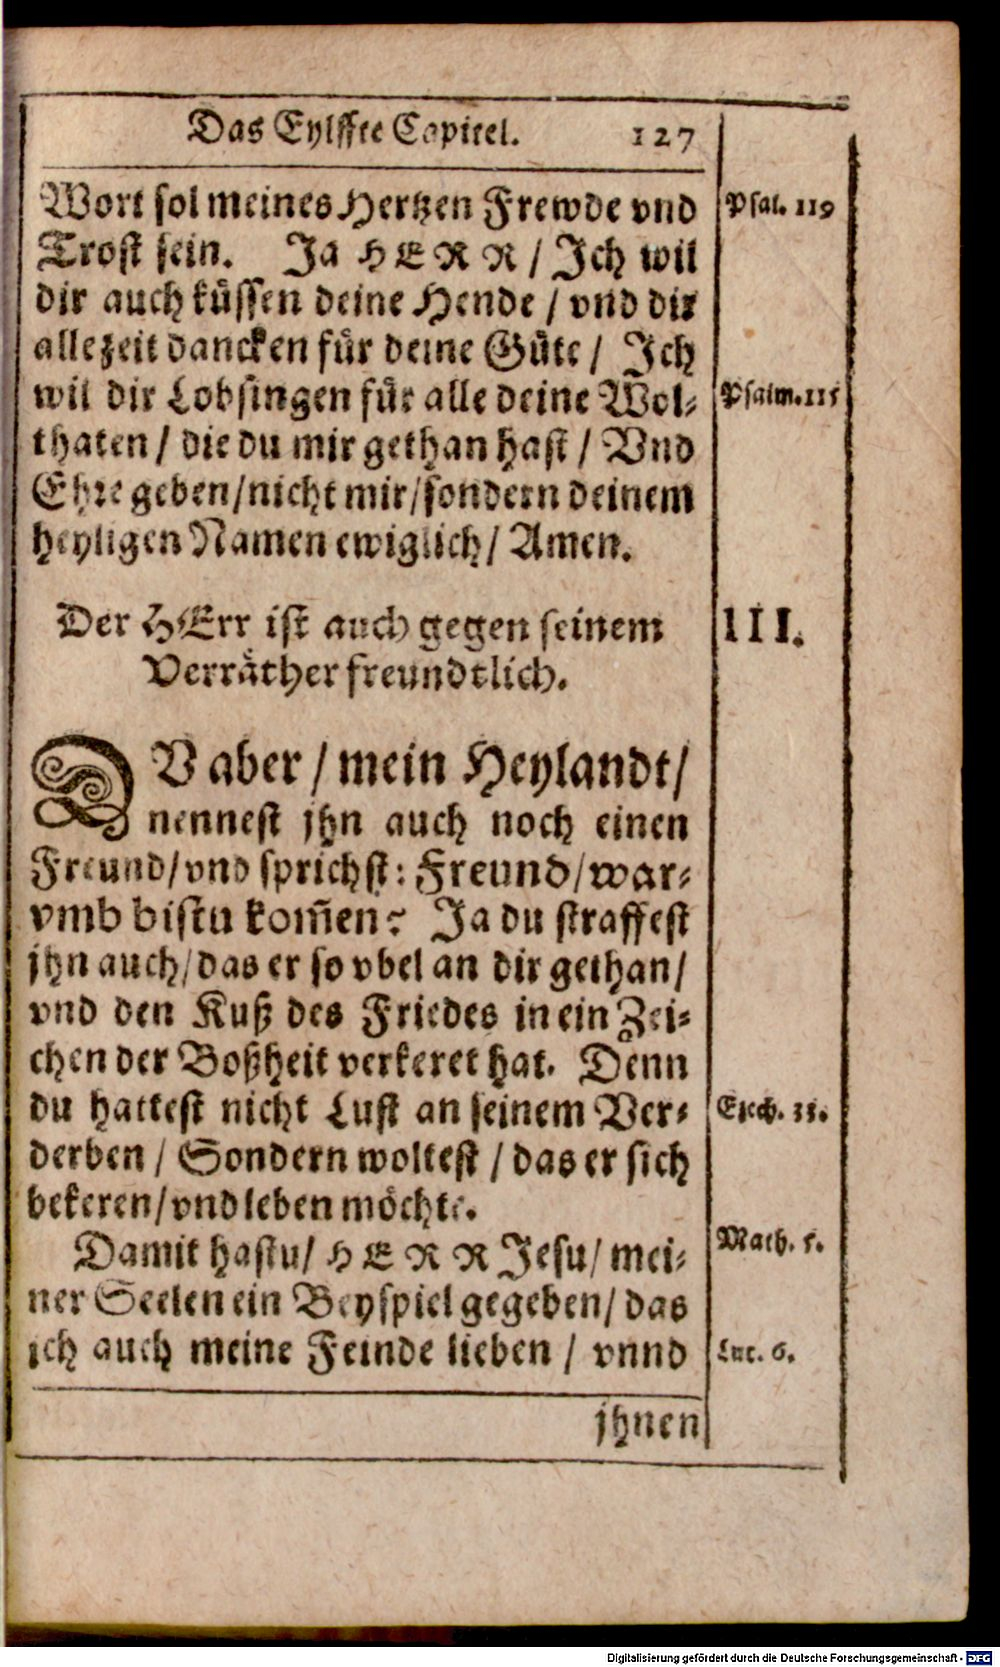 Das Eylffte Capitel. 127
Wort sol meines Hertzen Frewde vnd
Psal. 119
Trost sein. Ja HERR / Ich wil
dir auch küssen deine Hende / vnd dir
allezeit dancken für deine Güte / Ich
wil dir Lobsingen für alle deine Wol-
Psalm. 115
thaten / die du mir gethan hast / Vnd
Ehre geben / nicht mir / sondern deinem
heyligen Namen ewiglich / Amen.
Der HErr ist auch gegen seinem
III.
Verräther freundtlich.
DV aber / mein Heylandt /
nennest jhn auch noch einen
Freund / vnd sprichst: Freund / war-
vmb bistu kom̄en? Ja du straffest
jhn auch / das er so vbel an dir gethan /
vnd den Kuß des Friedes in ein Zei-
chen der Boßheit verkeret hat. Denn
du hattest nicht Lust an seinem Ver-
Ezech. 33.
derben / Sondern woltest / das er sich
bekeren / vnd leben möchte.
Damit hastu / HERR Jesu / mei-
Math. 5.
ner Seelen ein Beyspiel gegeben / das
ich auch meine Feinde lieben / vnnd
Luc. 6.
jhnen
Digitalisierung gefördert durch die Deutsche Forschungsgemeinschaft - DFG